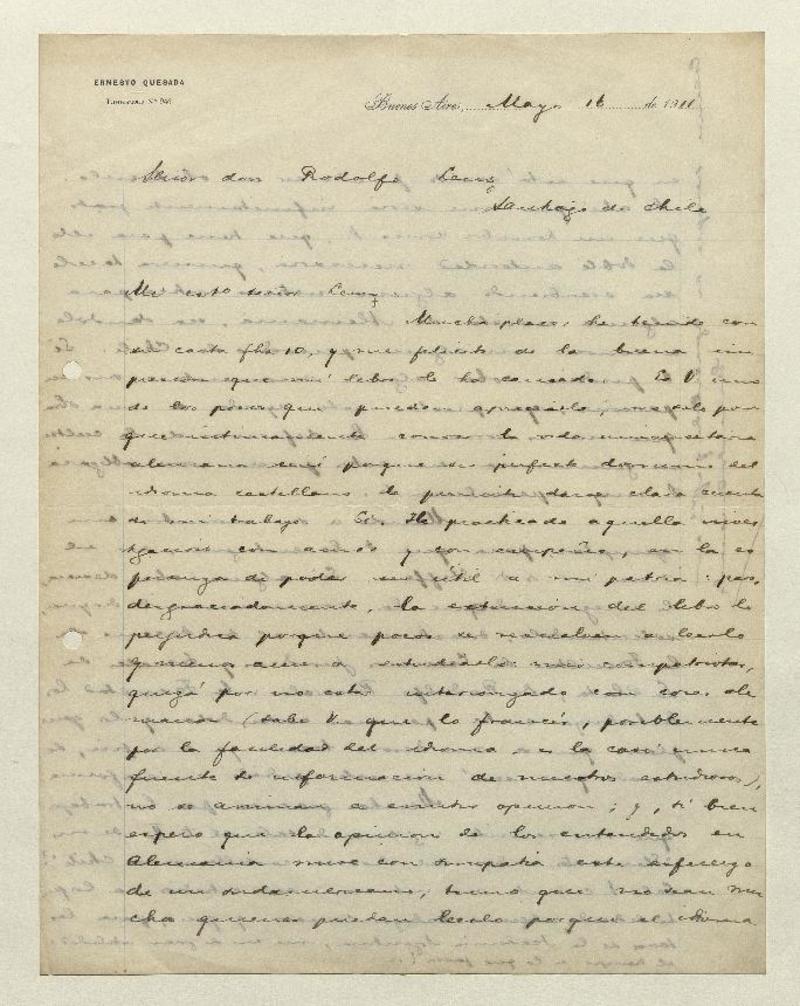 ERNESTO QUESADA
Buenos Aires, Mayo 16 de 1911
Señor don Rodolfo Lenz
Santiago de Chile
Mi est° señor Lenz
Mucho placer he tenido con
su carta fha 10, y me felicito de la buena im
presion que mi libro le ha causado. Es V. uno
de los pocos que pueden apreciarlo, no solo por
que intimamente conoce la vida universitaria
alemana sinó porque su perfecto dominio del
idioma castellano le permite darse clara cuenta
de mi trabajo. Si. He practicado aquella inves
tigacion con amor y con empeño, en la es
peranza de poder ser útil a mi patria: pero,
desgraciadamente, la extension del libro lo
perjudica porque pocos se resuelven a leerlo
y menos aun a estudiarlo: mis compatriotas,
quizá por no estar interiorizados con cosas ale
manas (sabe V. que lo francés, posiblemente
por la facilidad del idioma, es la casi unica
fuente de informacion de nuestros estudiosos),
no se animan a emitir opinion; y, si bien
espero que la opinion de los entendidos en
Alemania mire con simpatia este esfuerzo
de un sudamericano, temo que no sean mu
cho quienes puedan leerlo porque el idioma